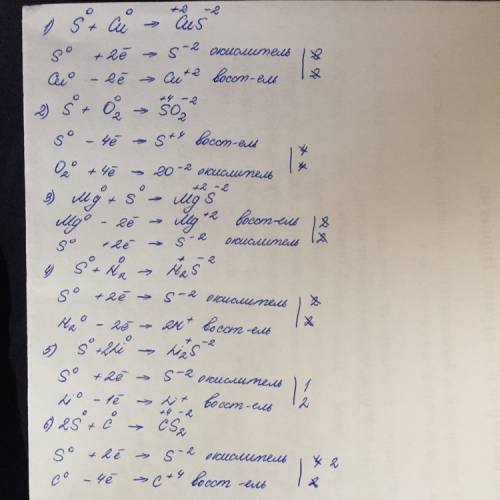 1) S⁰ + Cu⁰ → Cu⁺²S⁻²
S⁰ + 2ē → S⁻² окислитель | 2
Cu⁰ - 2ē → Cu⁺² восст-ель | 2
2) S⁰ + O₂⁰ → S⁺⁴O₂⁻²
S⁰ - 4ē → S⁺⁴ восст-ель | 4
O₂⁰ + 4ē → 2O⁻² окислитель | 4
3) Mg⁰ + S⁰ → Mg⁺²S⁻²
Mg⁰ - 2ē → Mg⁺² восст-ель | 2
S⁰ + 2ē → S⁻² окислитель | 2
4) S⁰ + H₂⁰ → H₂⁺S⁻²
S⁰ + 2ē → S⁻² окислитель | 2
H₂⁰ - 2ē → 2H⁺ восст-ель | 2
5) S⁰ + 2Li⁰ → Li₂⁺S⁻²
S⁰ + 2ē → S⁻² окислитель | 1
Li⁰ - 1ē → Li⁺ восст-ель | 2
6) 2S⁰ + C⁰ → C⁺⁴S₂⁻²
S⁰ + 2ē → S⁻² окислитель | 4 2
C⁰ - 4ē → C⁺⁴ восст-ель | 2